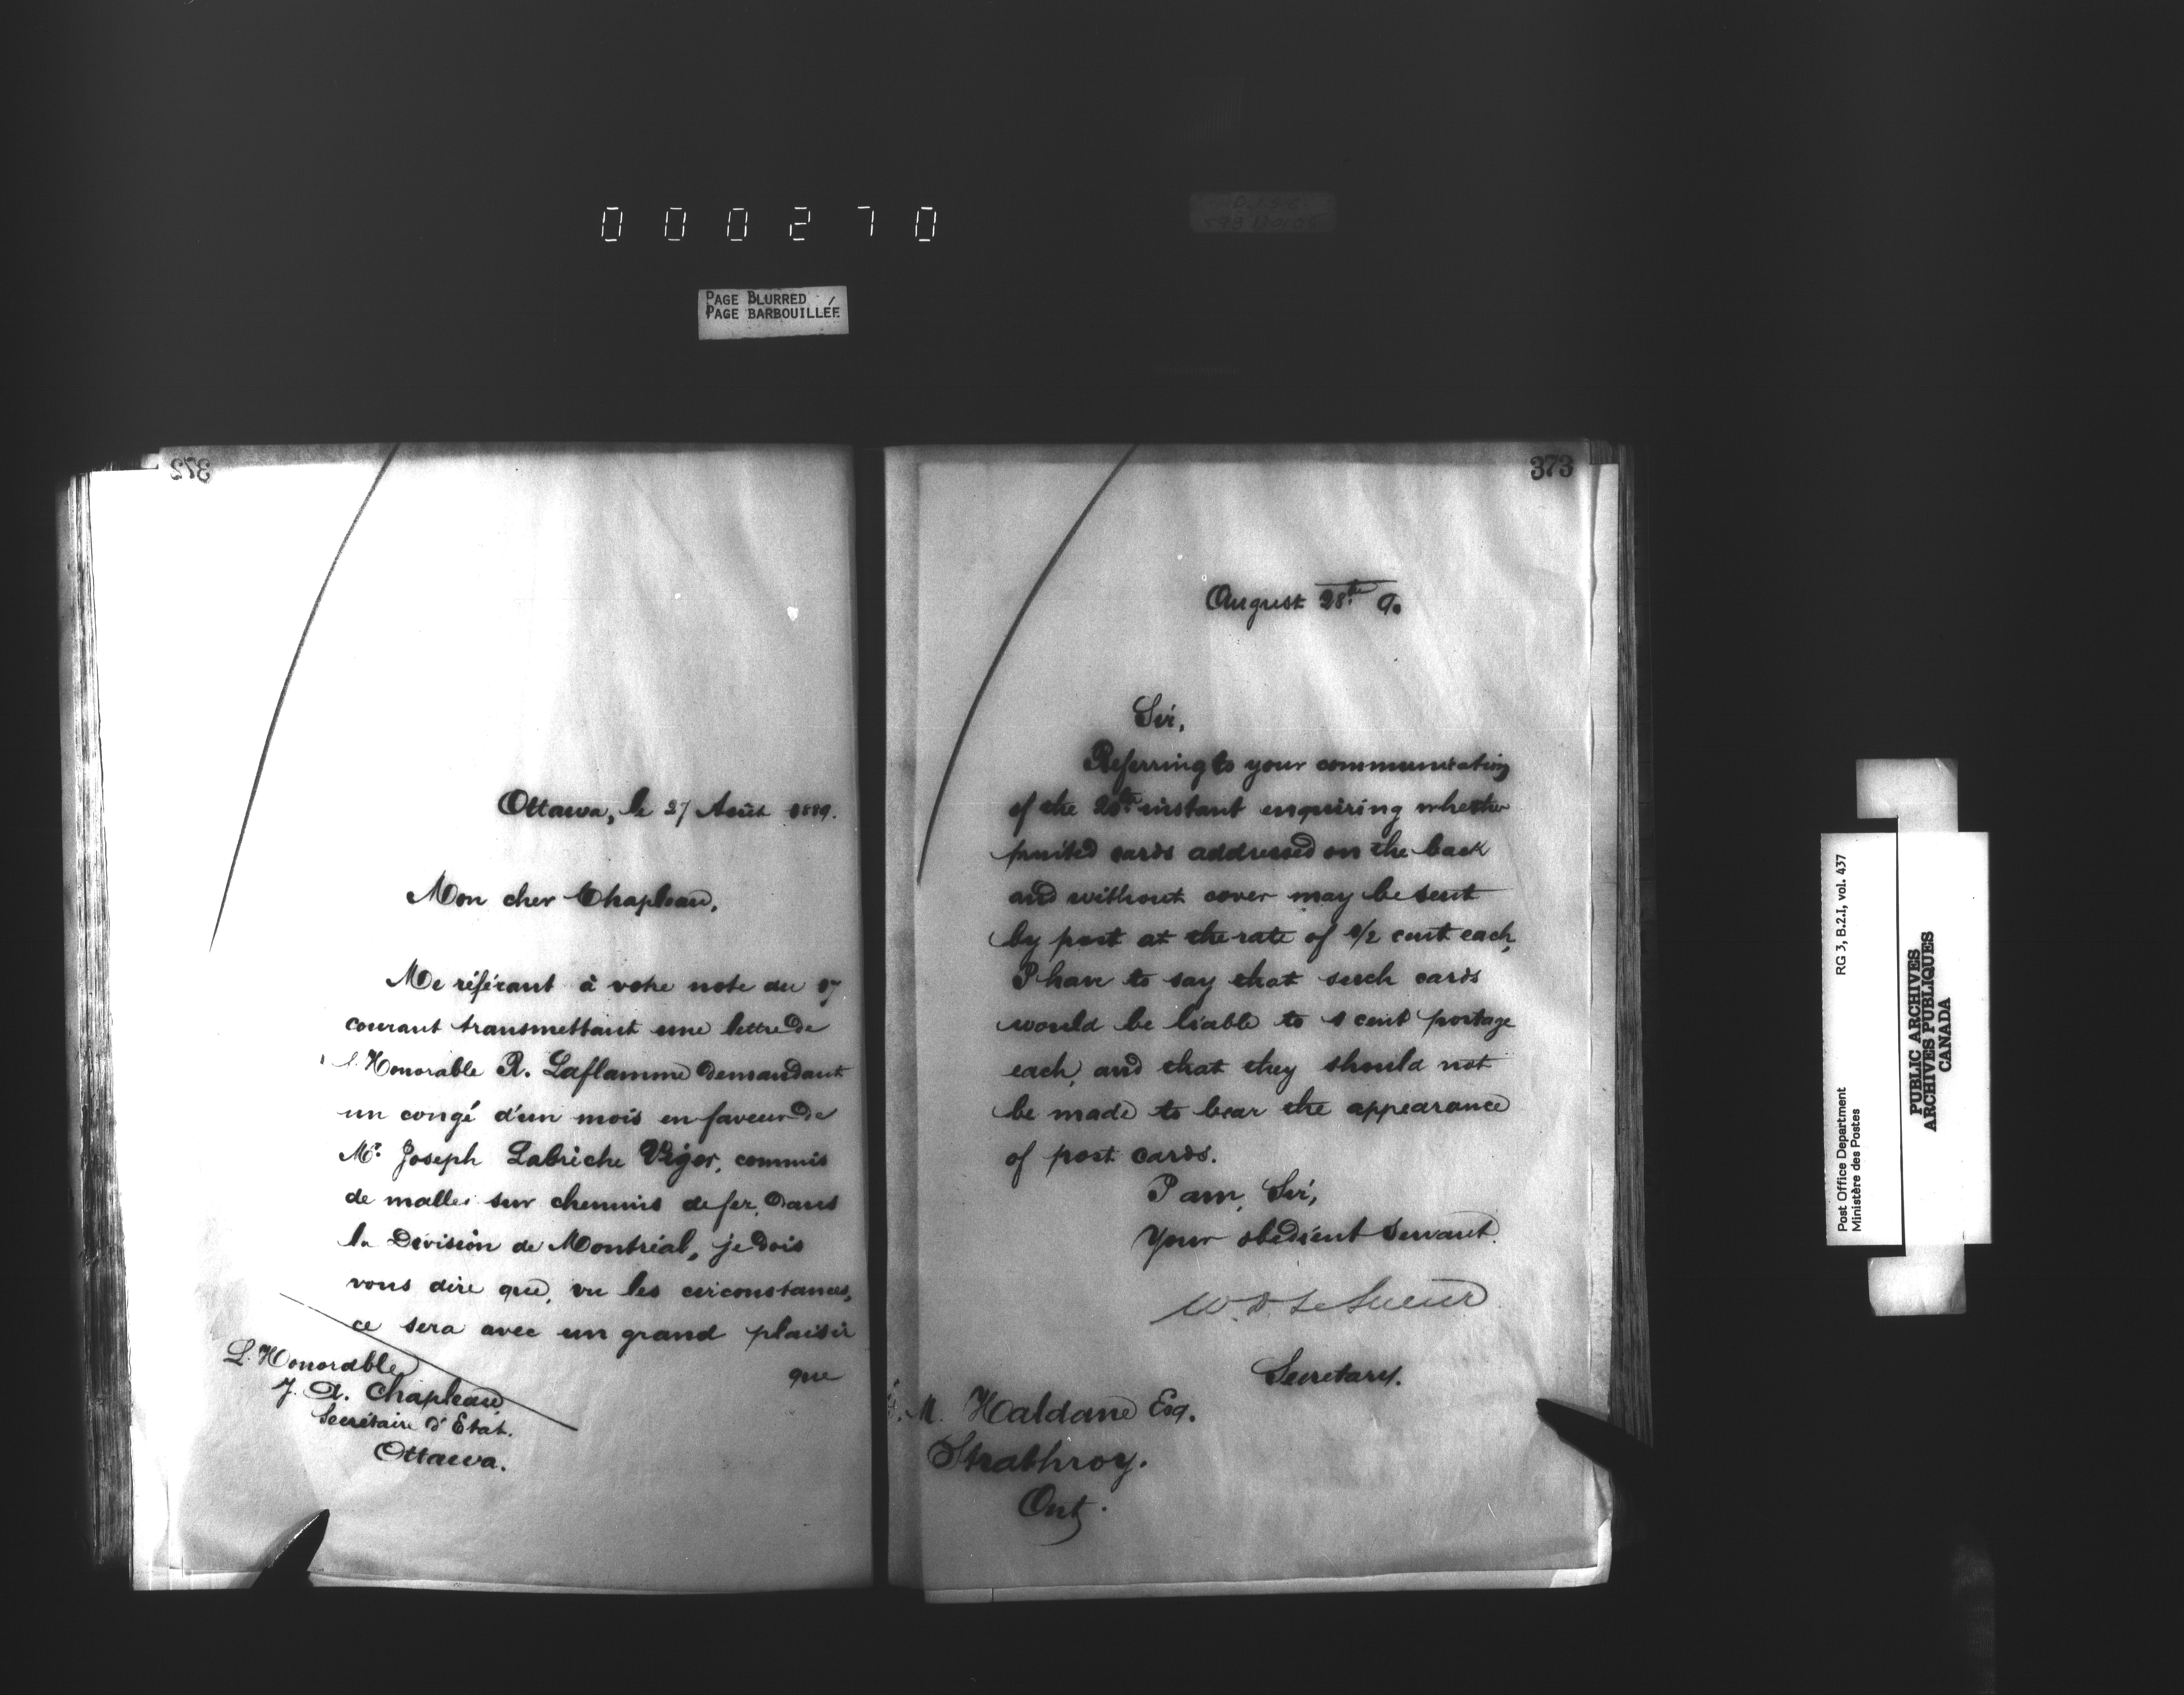 000270
PAGE BLURRED
PAGE BARBOUILLÉE
372
Ottawa, le 27 Août 1889.
Mon cher Chapleau,
Me référant à votre note du 17
courant transmettant une lettre de
l'Honorable R. Laflamme demandant
un congé d'un mois en faveur de
Mr. Joseph Labriche Viger, commis
de malles sur chemins de fer, dans
la Division de Montréal, je dois
vous dire que, vu les circonstances,
ce sera avec un grand plaisir
que
L'Honorable
J. A. Chapleau
Secrétaire d'Etat.
Ottawa.
373
August 28th 9.
Sir,
Referring to your communication
of the instant enquiring whether
printed cards addressed on the back
and without cover may be sent
by post at the rate of 1/2 cent each,
I have to say that such cards
would be liable to 1 cent postage
each, and that they should not
be made to bear the appearance
of post cards.
I am, Sir,
Your obedient Servant.
W. D. LeSueur
Secretary.
M. Haldane Esq.
Strathroy.
Ont.
Post Office Department
Ministère des Postes
RG 3, B.2.I, vol. 437
PUBLIC ARCHIVES
ARCHIVES PUBLIQUES
CANADA